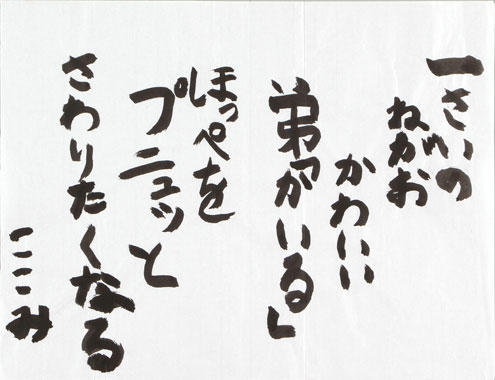 一さいの
ねがお
かわいい
弟がいる」
ほっぺを
プニュッと
さわりたくなる
ここみ